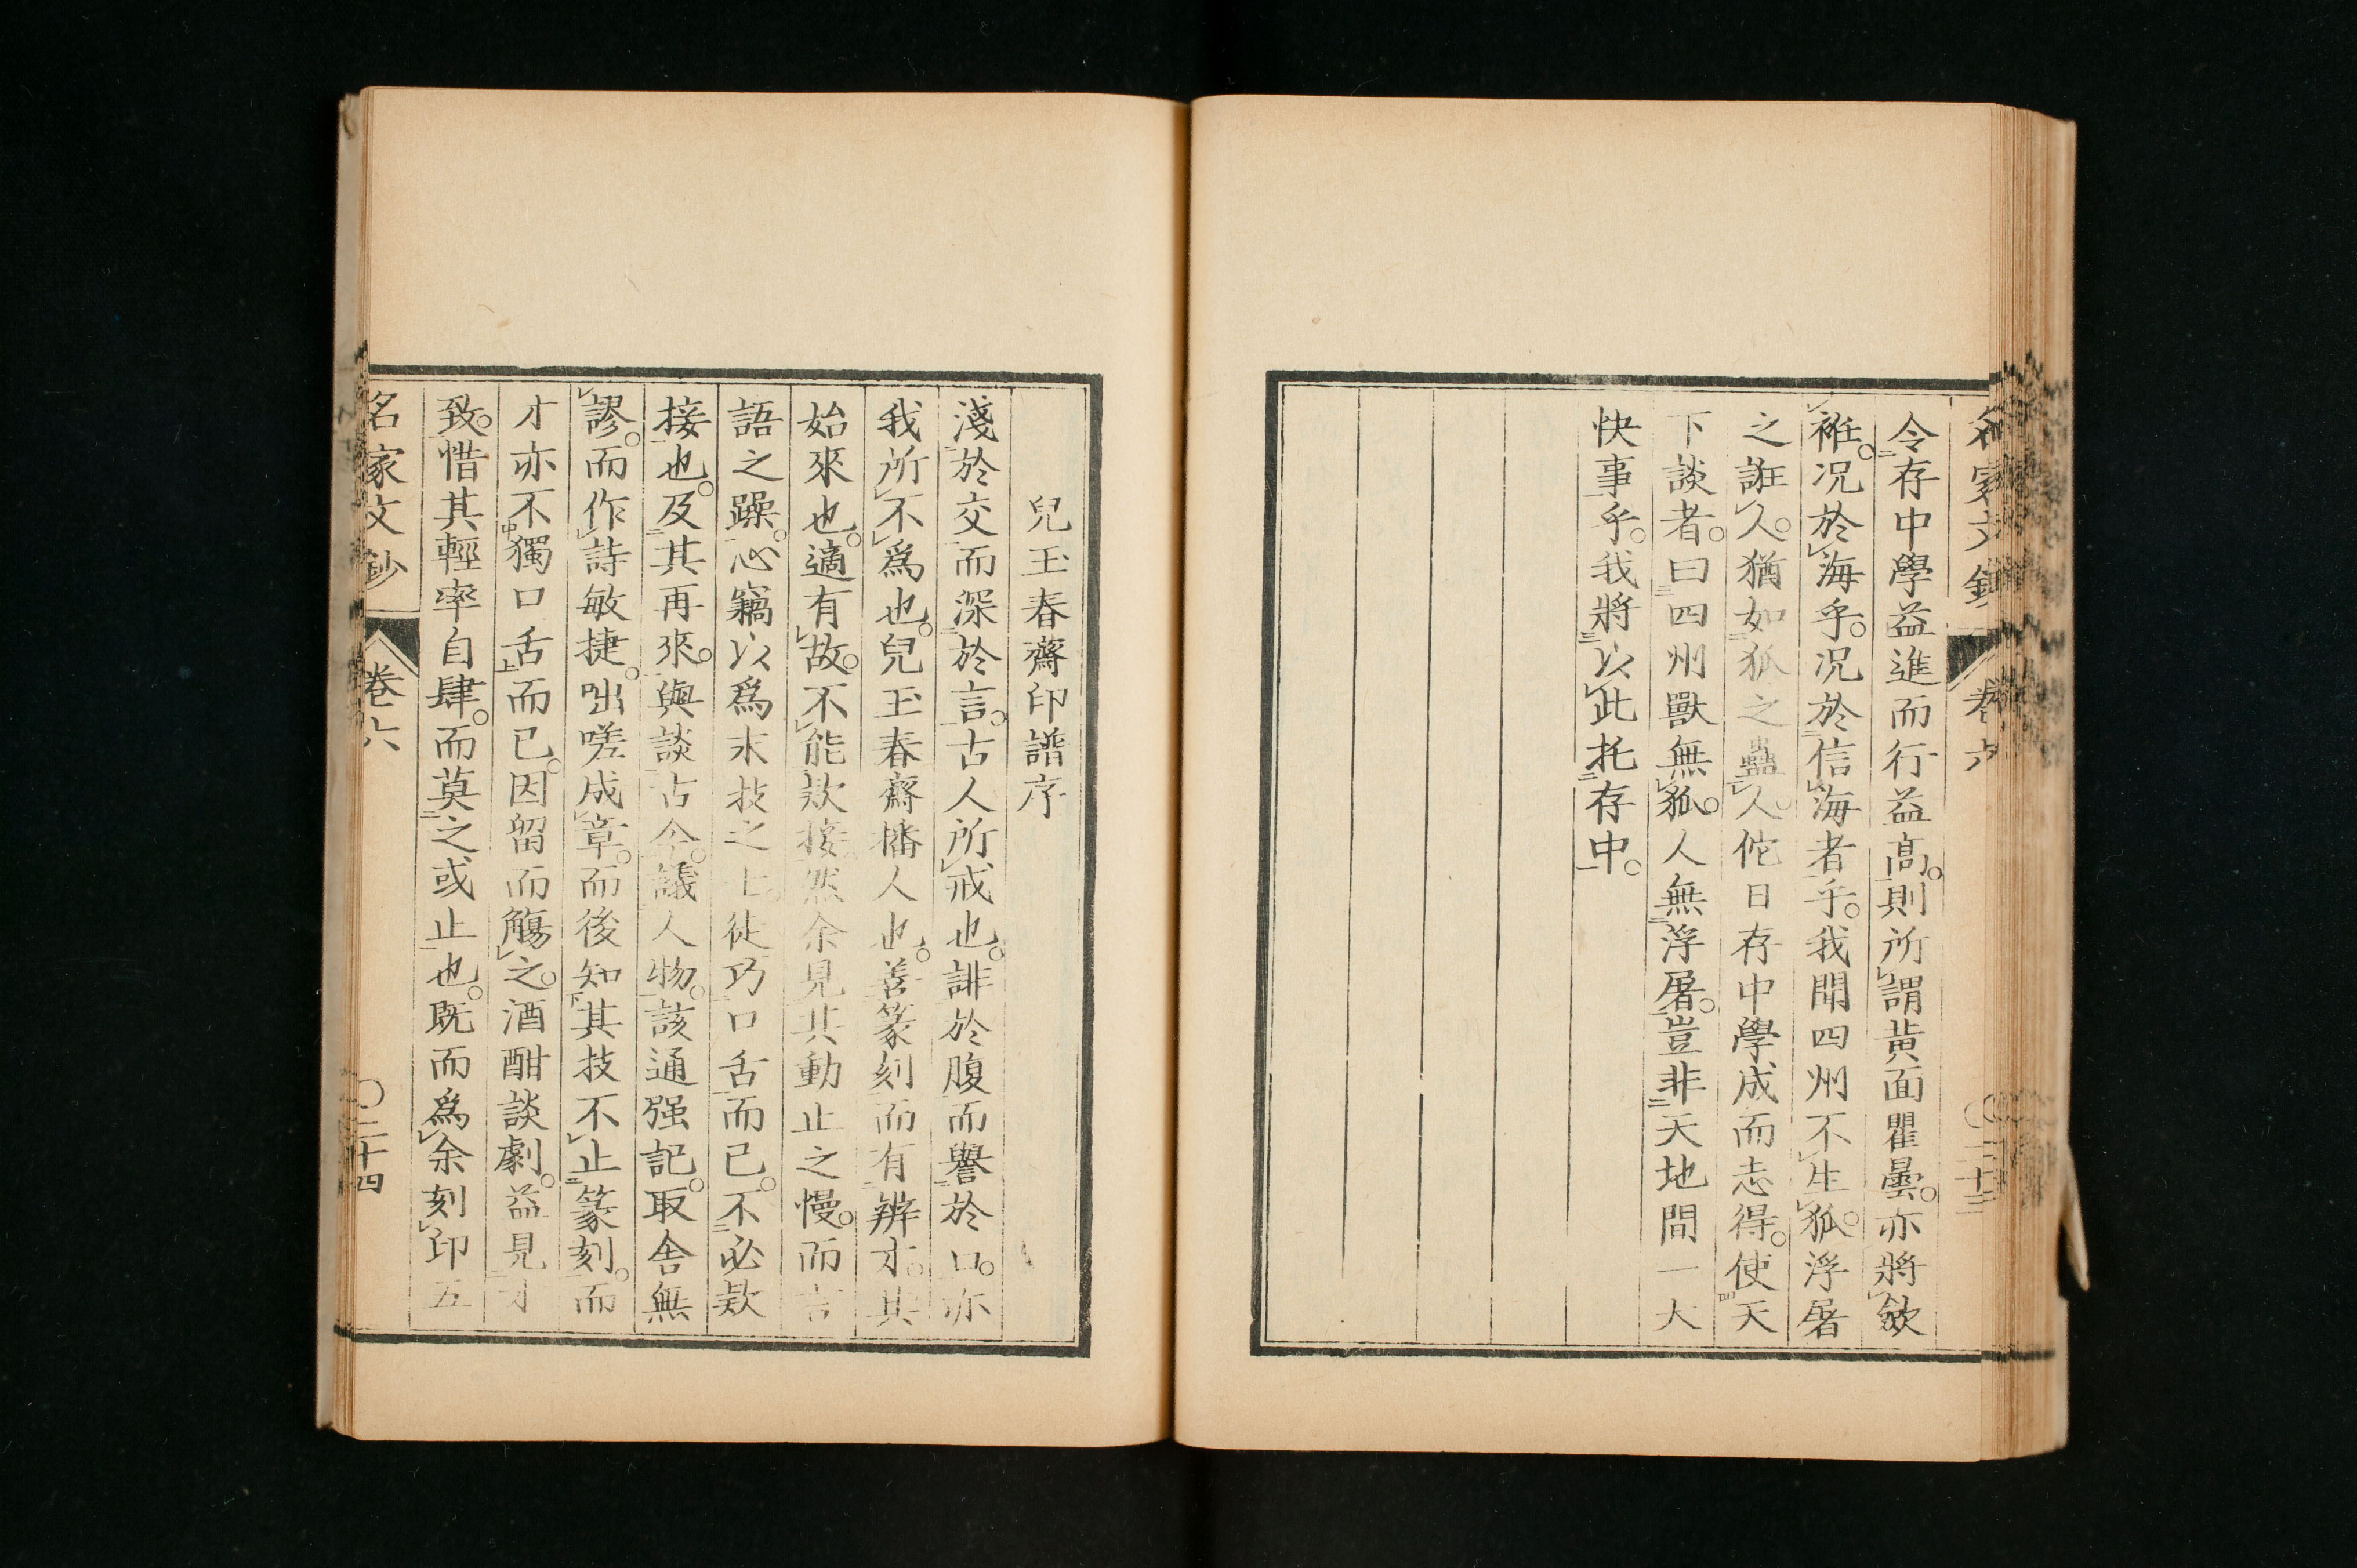 名家文鈔 卷六 〇二十三
令存中學益進而行益高。則所謂黄面瞿曇。亦將斂
袵。况於海乎。况於信海者乎。我聞四州不生狐。浮屠
之誑人。猶如狐之蠱人。佗日存中學成而志得。使天
下談者。曰四州獸無狐。人無浮屠。豈非天地間一大
快事乎。我將以此托存中。
兒玉春齋印譜序
淺於交而深於言。古人所戒也。誹於腹而譽於口。亦
我所不爲也。兒玉春齋播人也。善篆刻而有辨才。其
始來也。適有故。不能欵接然余見其動止之慢。而言
語之躁。心竊以爲末技之士。徒巧口舌而已。不必欵
接也。及其再來。與談古今。議人物。該通强記。取舍無
謬。而作詩敏捷。咄嗟成章。而後知其技不止篆刻。而
才亦不獨口舌而已。因留而觴之。酒酣談劇。益見才
致。惜其輕率自肆。而莫之或止也。既而爲余刻印五
名家文鈔 卷六 〇二十四